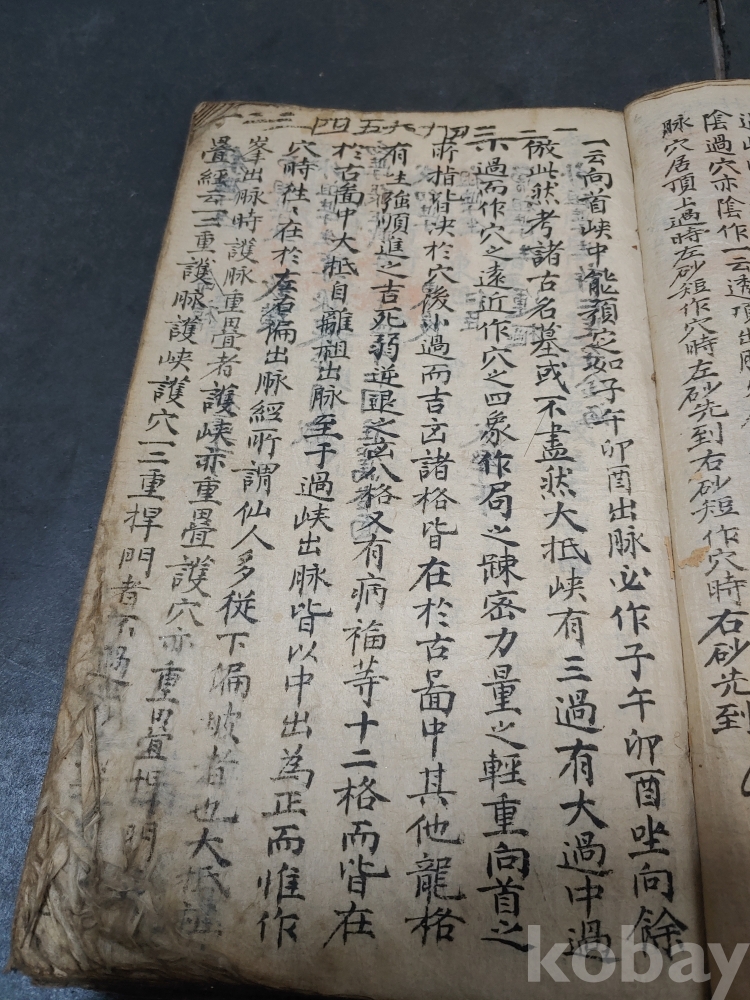 陰過穴亦陰作一云透頂出脉
脉穴居頂上過時左砂短作穴時左砂先到右砂短作穴時右砂先到
一二三四九六五四三二一
一云向首峽中能預定如子午卯酉出脉必作子午卯酉坐向餘
倣此然考諸古名墓或不盡然大抵峽有三過有大過中過
小過而作穴之遠近作穴之四象作局之踈密力量之輕重向首之
所指皆决於穴後小過而吉凶諸格皆在於古啚中其他龍格
有生強順進之吉死弱逆退之凶八格又有病福等十二格而皆在
於古啚中大抵自離祖出脉至于過峽出脉皆以中出為正而惟作
穴時徃〻在於左右偏出脉經所謂仙人多従下偏坡者也大抵
峯出脉時護脉重疊者護峽亦重疊護穴亦重疊捍門
疊經云三重護脉護峽護穴一二重捍門者不
kobay